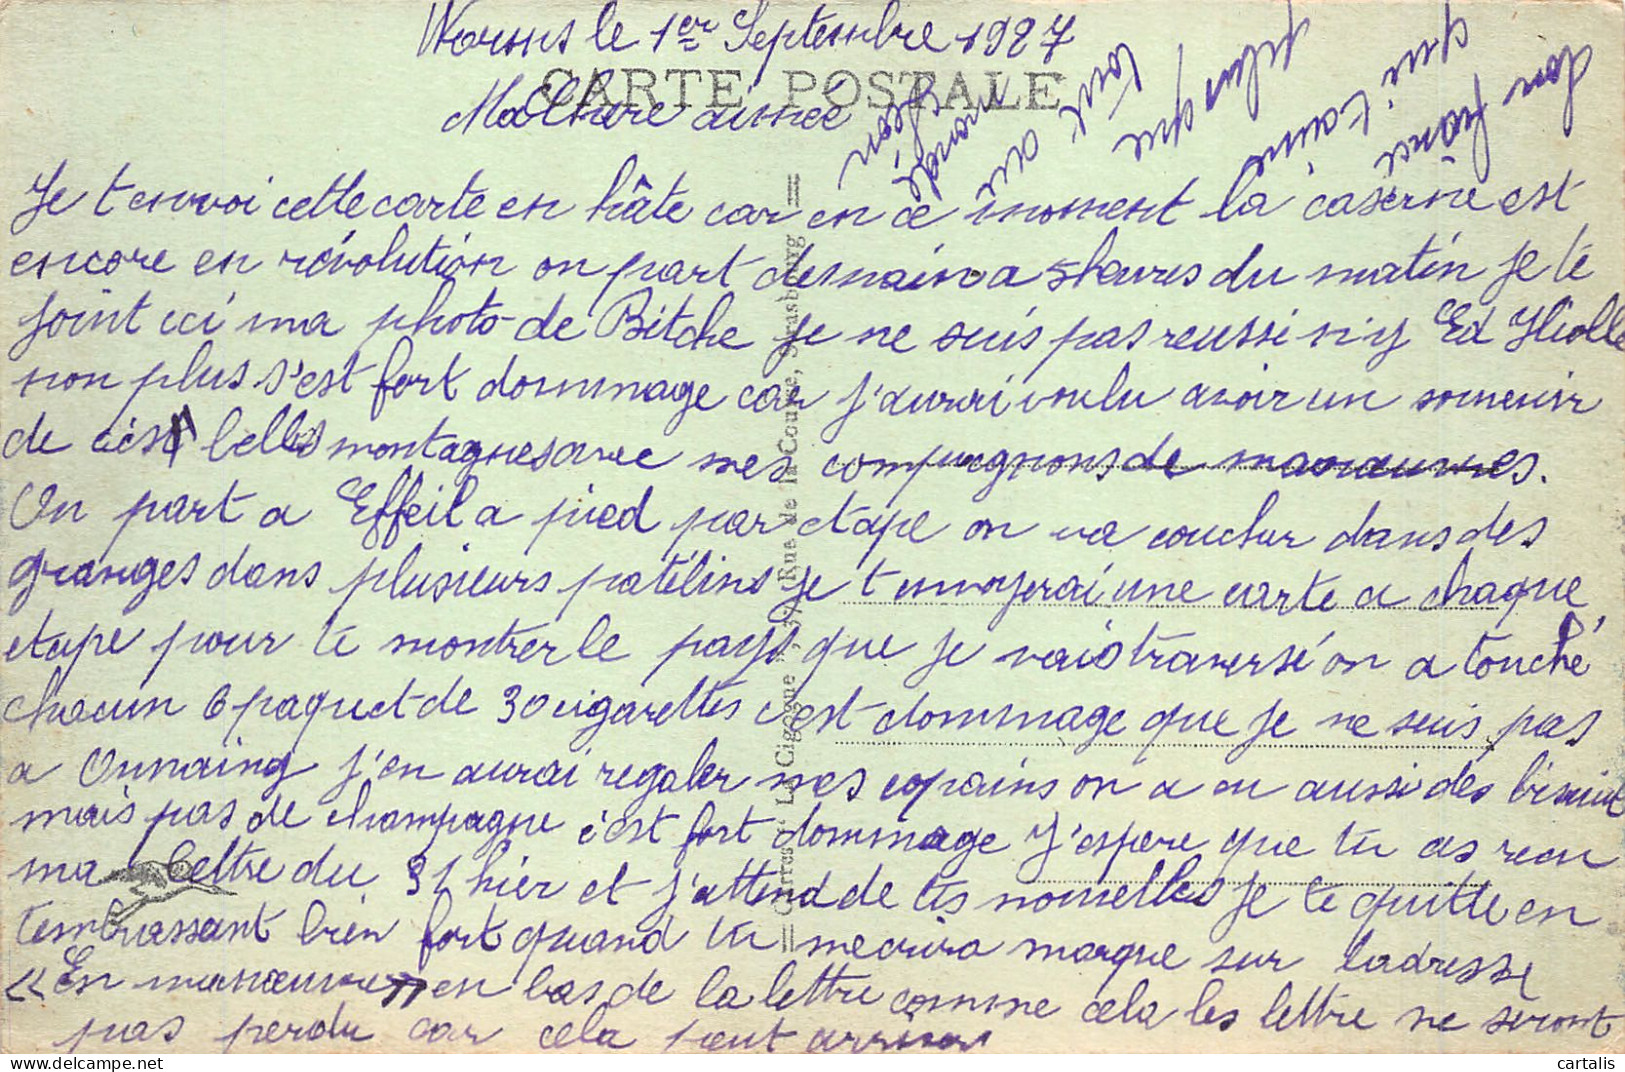 Worms le 1er Septembre 1927
CARTE POSTALE
Ma Chère aimée
Je t envoi cette carte en hâte car en ce moment la caserne est
encore en révolution on part demain a 5 heures du matin je te
joint ici ma photo de Bitche je ne suis pas reussi n'y Ed
non plus s'est fort dommage car j'aurai voulu avoir un souvenir
de ces belles montagnes avec mes compagnons de manœuvres.
On part a Effeil a pied par etape on va coucher dans des
granges dans plusieurs patélins je t envoyerai une carte a chaque
etape pour te montrer le pays que je vais traversé on a touché
chacun 6 paquet de 30 cigarettes c'est dommage que je ne suis pas
a Onnaing j'en aurai regaler mes copains on a eu aussi des biscuit
mais pas de champagne c'est fort dommage J'espere que tu as reçu
ma lettre du 31 hier et j'attend de tes nouvelles je te quitte en
t'embrassant bien fort quand tu mecrira marque sur ladresse
« En manœuvre » en bas de la lettre comme cela les lettre ne seront
pas perdu car cela peut arriver
Ton fiancé
qui t'aime
plus que
tout au
monde
Géléon
Cartes " La Cigogne ", 37 Rue de la Course, Strasbourg
cartalis